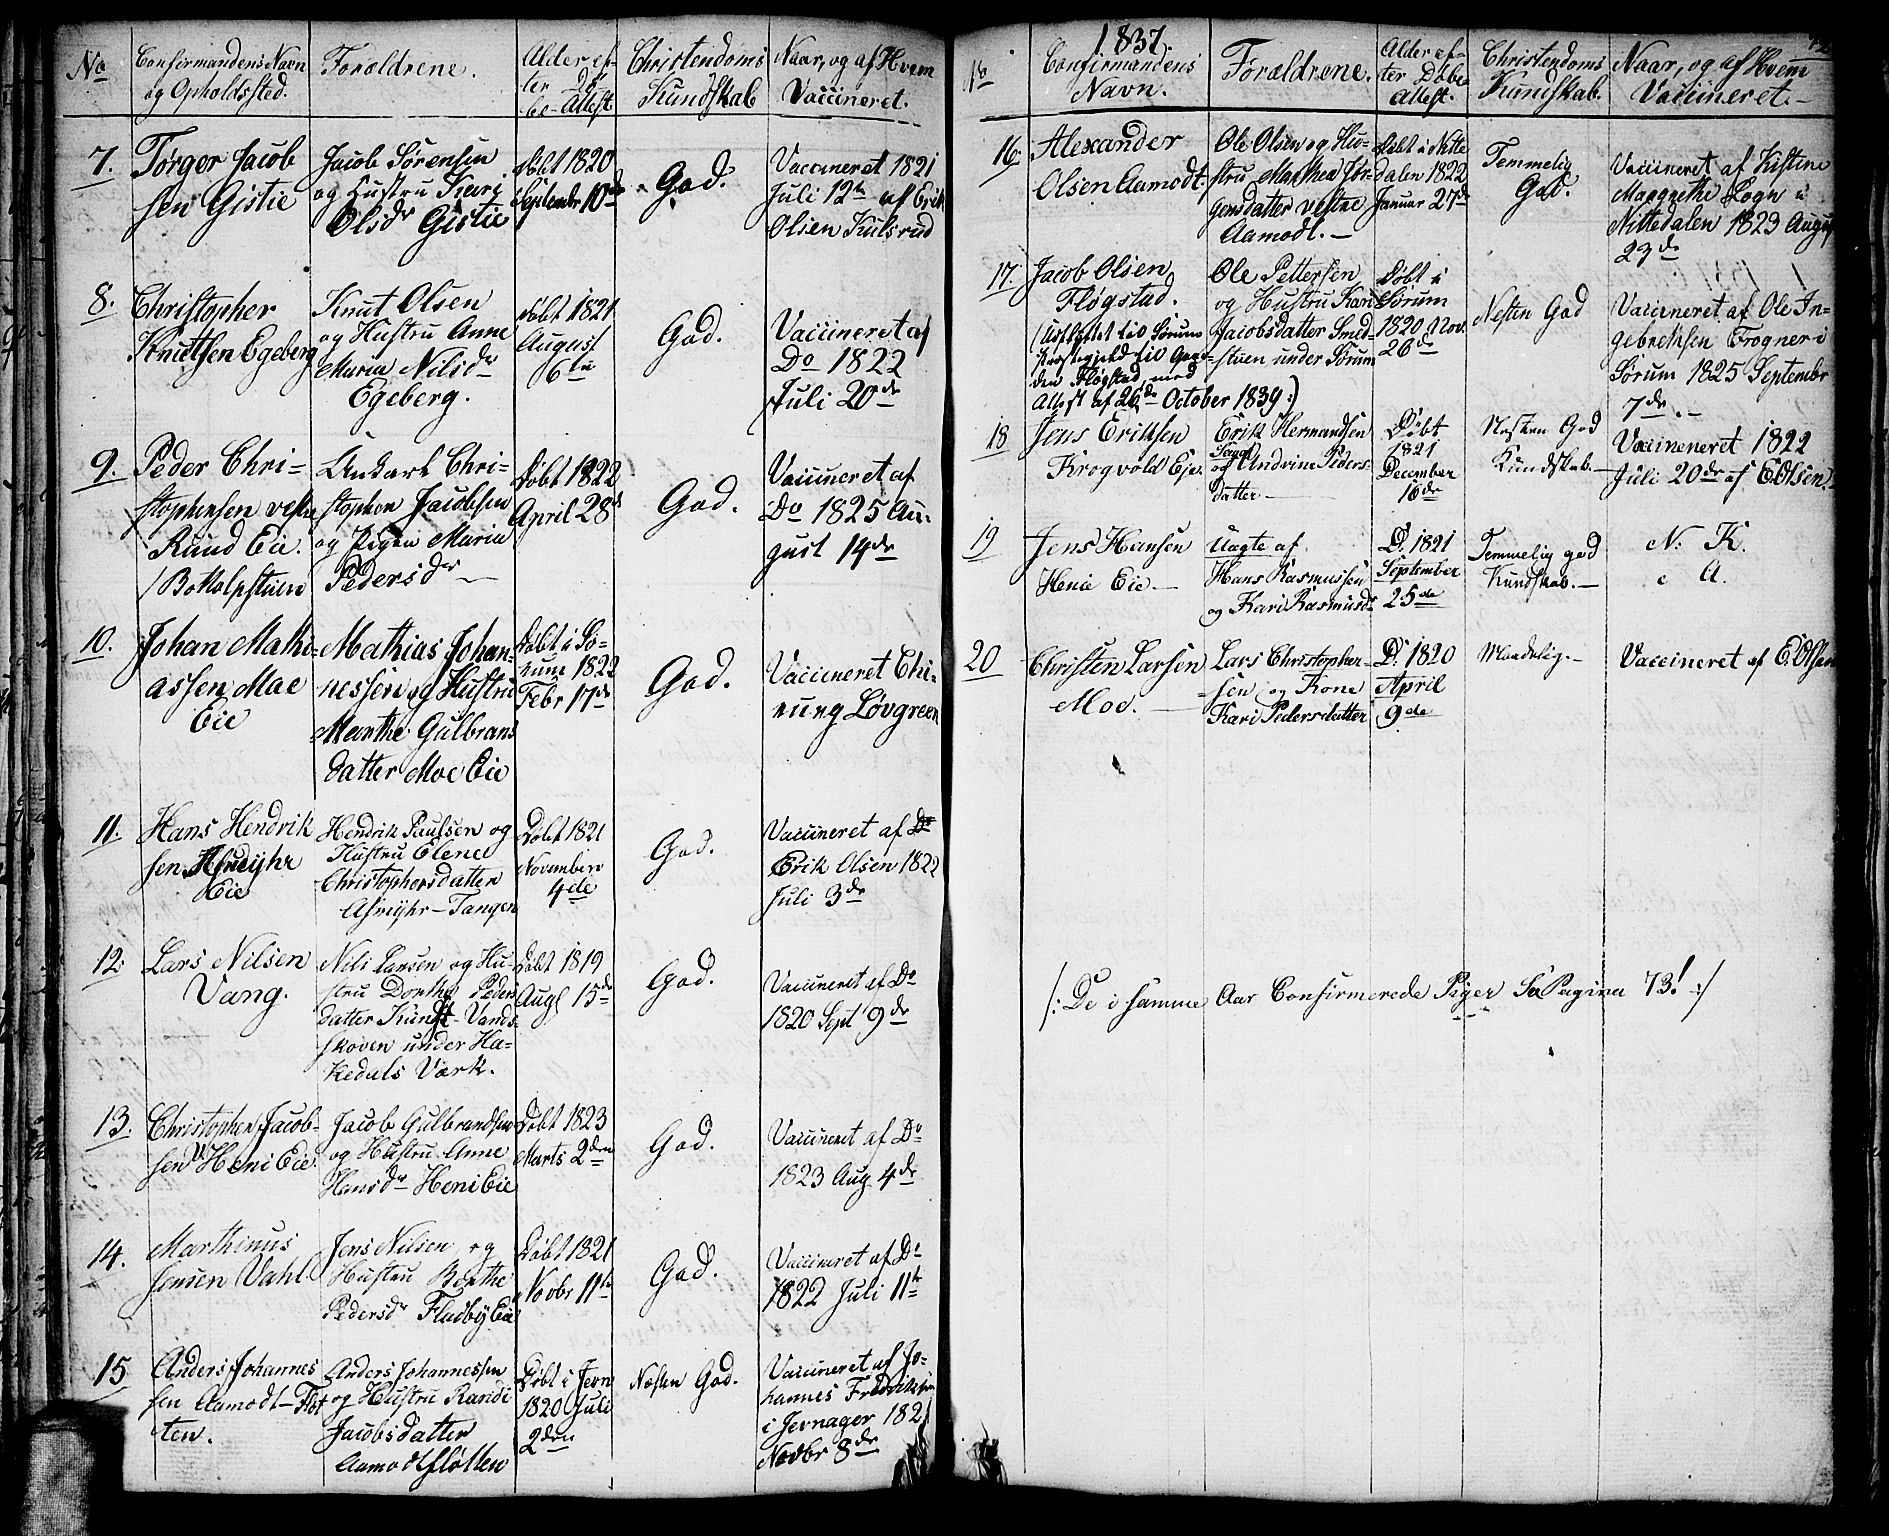 No
Confirmandens Navn
og Opholdssted.
Forældrene.
Alder ef-
ter Dö-
be-Attest.
Christendoms
Kundskab
Naar, og af Hvem
Vaccineret.
7.
Törger Jacob
sen Gistie
Jacob Sörensen
og Hustru Kari
Olsdr Gistie
Döbt 1820
September 10de
God.
Vaccineret 1821
Juli 12te af Erik
Olsen Kulsrud
8.
Christopher
Knutsen Egeberg
Knut Olsen
og Hustru Anne
Maria Nilsdr
Egeberg.
döbt 1821
August
6te
God.
Vaccineret af
Do 1822
Juli 20de
9.
Peder Chri-
stophersen vestre
Rund Eie.
/Botholpstuen
Unkark Chri-
stopher Jacobsen
og Pigen Maria
Pedersdr
Döbt 1822
April 28de
God.
Vaccineret af
Do 1825 Au-
gust 14de
10.
Johan Mathi-
assen Moe
Eie
Mathias Johan-
nessen og Hustru
Marthe Gulbrans
datter Moe Eie
Döbt i Sö-
rum 1822
Febr 17de
God.
Vaccineret Chi-
rurg Lövgreen
11.
Hans Hendrik
sen
Eie
Hendrik Paulsen og
Hustru Elene
Christophersdatter
Asmyhr-Tangen
Döbt 1821
November
4de
God.
Vaccineret af Do
Erik Olsen 1822
Juli 3de
12.
Lars Nilsen
Vang.
Nils Larsen og Hu-
stru Dorthe Peders
datter Kunst-Vands-
skoven under Ha-
kedals Værk.
Döbt 1819
Augs 15de
God.
Vaccineret af Do
1820 Sept 9de
13.
Christopher Jacob-
sen Heni Eie.
Jacob Gulbrandsen
og Hustru Anne
Hansdr Heni Eie
Döbt 1823
Marts 2den
God.
Vaccineret af Do
1823 Aug 4de
14.
Marthinus
Jensen Vahl.
Jens Nilsen og
Hustru Berthe
Pedersdr Fladby Eie
Döbt 1821
Novbr 11te
God.
Vaccineret af Do
1822 Juli 11te
15
Anders Johannes
sen Aamodt-Flöt
ten.
Anders Johannessen
og Hustru Randi
Jacobsdatter
Aamodtflötten
Döbt i Jevn
1820 Juli
2den
Næsten God.
Vaccineret af Jo-
hannes Fredriksen
i Jevnager 1821
Novbr 8de
1837.
No
Confirmandens
Navn.
Forældrene.
Alder ef-
ter Döbe-
Attest.
Christendoms
Kundskab.
Naar, og af Hvem
Vaccineret.
16.
Alexander
Olsen Aamodt.
Ole Olsen og Hu-
stru Marthea Jör-
gensdatter vestre
Aamodt.
Döbt i Nitte
dalen 1822
Januar 27de
Temmelig
God.
Vaccineret af Kistine
Margrethe Logn i
Nittedalen 1823 August
23de
17.
Jacob Olsen
Flögstad.
(Udflyttet til Sörum
Præstegjeld til Gaar-
den Flögstad, med
Attest af 26de October 1839.)
Ole Pettersen
og Hustru Kari
Jacobsdatter Smed-
stuen under Sörum
Döbt i
Sörum
1820 Nov.
26de
Nesten God
Vaccineret af Ole In-
gebrethsen Frogner i
Sörum 1825 Septembr
7de
18
Jens Eriksen
Krogvold Eje.
Erik Hermandsen
og Andrine Peders-
datter
Döbt
1821
December
16de
Nesten God
Kundskab.
Vaccineneret 1822
Juli 20de af E. Olsen.
19
Jens Hansen
Henie Eie.
Uægte af
Hans Rasmussen
og Kari Rasmusdr
D. 1821
September
25de
Temmelig god
Kundskab.
N. K.
A.
20
Christen Larsen
Moe.
Lars Christopher-
sen og Kone
Kari Pedersdatter
D. 1820
April
9de
Maadelig.
Vaccineret af E. Olsen
/: De i samme Aar Confirmerede Piger Se Pagina 73! :/